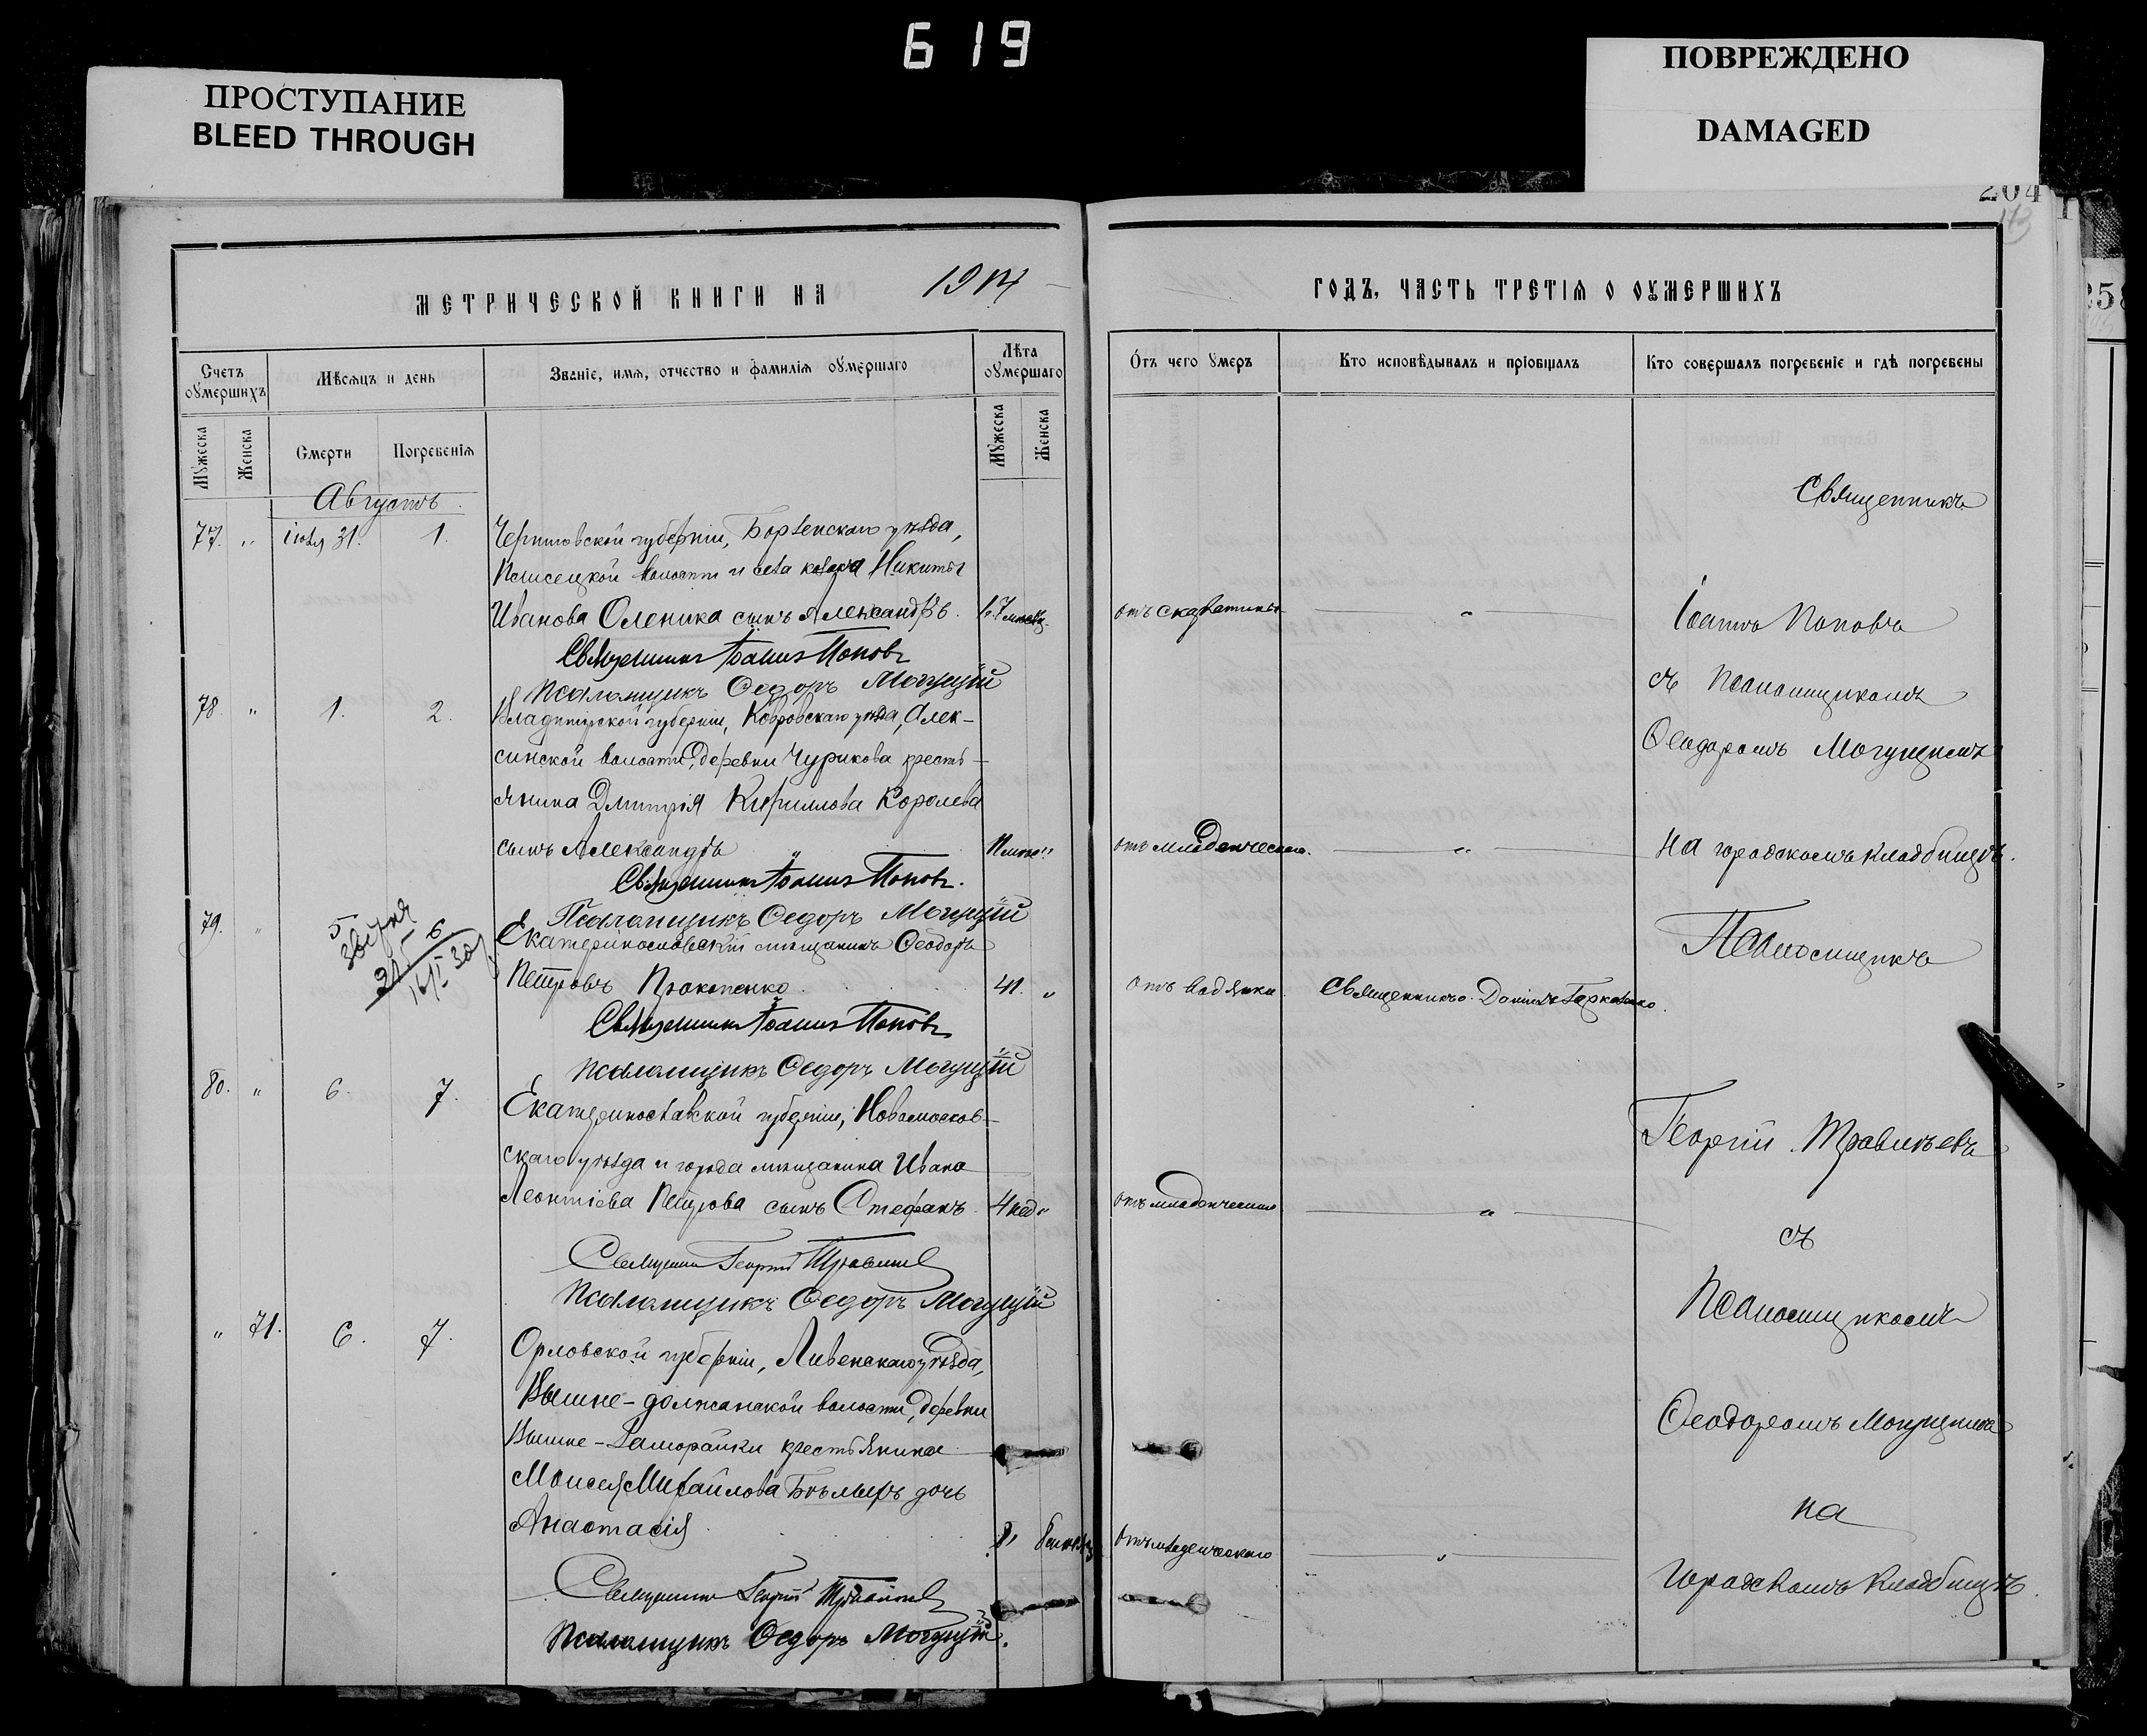 619
ПРОСТУПАНИЕ
BLEED THROUGH
ПОВРЕЖДЕНО
DAMAGED
204
МЕТРИЧЕСКОЙ КНИГИ НА 1914
Счетъ оумершихъ
Мѣсяцъ и день
Званіе, имя, отчество и фамилія оумершаго
Лѣта оумершаго
Мужеска
Женска
Смерти
Погребенія
Мужеска
Женска
Августъ
77. " іюля 31. 1. Черниговской губерніи, Борзенскаго уѣзда,
волости и села козака Никиты
Иванова Оленика сынъ Александръ.
Священникъ Іоаннъ Поповъ
Псаломщикъ Ѳедоръ Могущій
78 " 1. 2. Владимірской губерніи, Ковровскаго уѣзда, Алек-
синской волости, деревни Чурикова кресть-
янина Дмитрія Кириллова Королева
сынъ Александръ "
Священникъ Іоаннъ Поповъ.
Псаломщикъ Ѳедоръ Могущій
79. " 5 6 Екатеринославскій мѣщанинъ Ѳеодоръ
Петровъ Прокопенко 41. "
Священникъ Іоаннъ Поповъ
Псаломщикъ Ѳедоръ Могущій
80. " 6. 7. Екатеринославской губерніи, Новомосков-
скаго уѣзда и города мѣщанина Ивана
Леонтіева Петрова сынъ Стефанъ 4 нед "
Священникъ Георгій
Псаломщикъ Ѳедоръ Могущій
" 71. 6. 7. Орловской губерніи, Ливенскаго уѣзда,
Вышне-должанской волости, деревни
Вышне- крестьянина
Моисея Михайлова дочь
Анастасія
Священникъ Георгій
Псаломщикъ Ѳедоръ Могущій.
ГОДЪ, ЧАСТЬ ТРЕТІЯ О ОУМЕРШИХЪ
Отъ чего умеръ
Кто исповѣдывалъ и пріобщалъ
Кто совершалъ погребеніе и гдѣ погребены
Священникъ
отъ скарлатины " Іоаннъ Поповъ
съ псаломщикомъ
Ѳеодоромъ Могущимъ
отъ младенческаго. " на городскомъ кладбищѣ.
Псаломщикъ
отъ водянки Священникъ
Георгій
отъ младенческаго "
съ
псаломщикомъ
Ѳеодоромъ Могущимъ
на
отъ младенческаго "
городскомъ кладбищѣ.